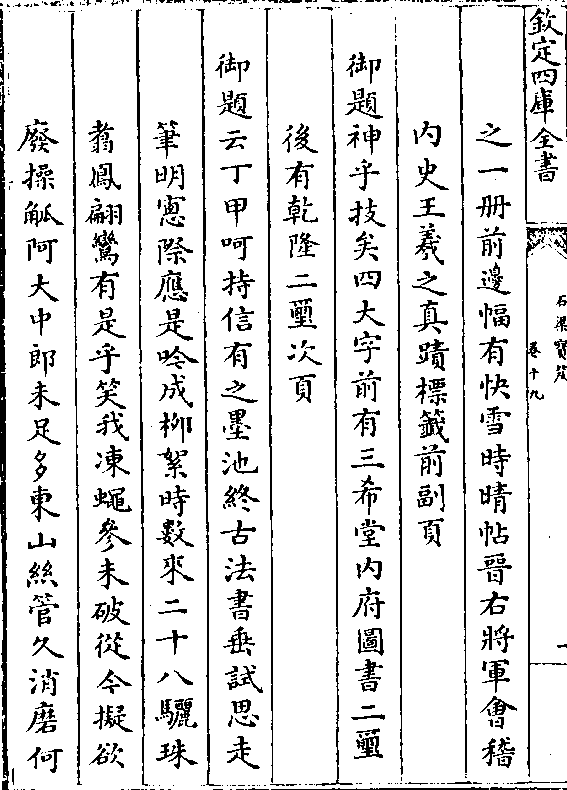 欽定四庫全書
石渠寶笈
卷十九
之一冊前邊幅有快雪時晴帖晉右將軍會稽
内史王羲之真蹟標籤前副頁
御題神乎技矣四大字前有三希堂内府圖書二璽
後有乾隆二璽次頁
御題云丁甲呵持信有之墨池終古法書垂試思走
筆明窗際應是吟成柳絮時數來二十八驪珠
翥鳳翩鸞有是乎笑我凍蠅參未破從今擬欲
廢操觚阿大中郎未足多東山絲管久消磨何